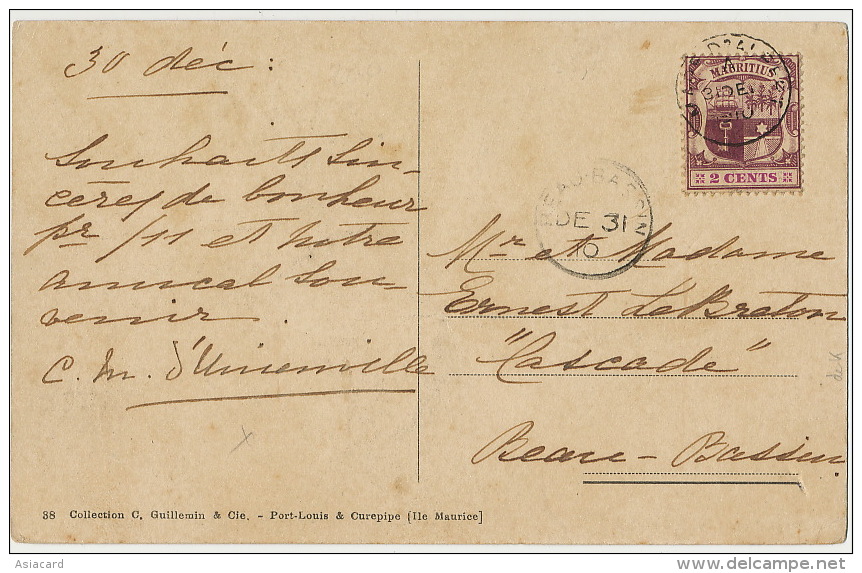 30 déc :
Souhaits sin-
cères de bonheur
pr /11 et notre
amical sou-
venir.
C. M. d'Unienville
MAURITIUS
2 CENTS
BEAU-BASSIN
DE 31
10
Mr et Madame
Ernest LeBreton
"Cascade"
Beau-Bassin
38 Collection C. Guillemin & Cie. - Port-Louis & Curepipe [Ile Maurice]
Asiacard
delcampe.net